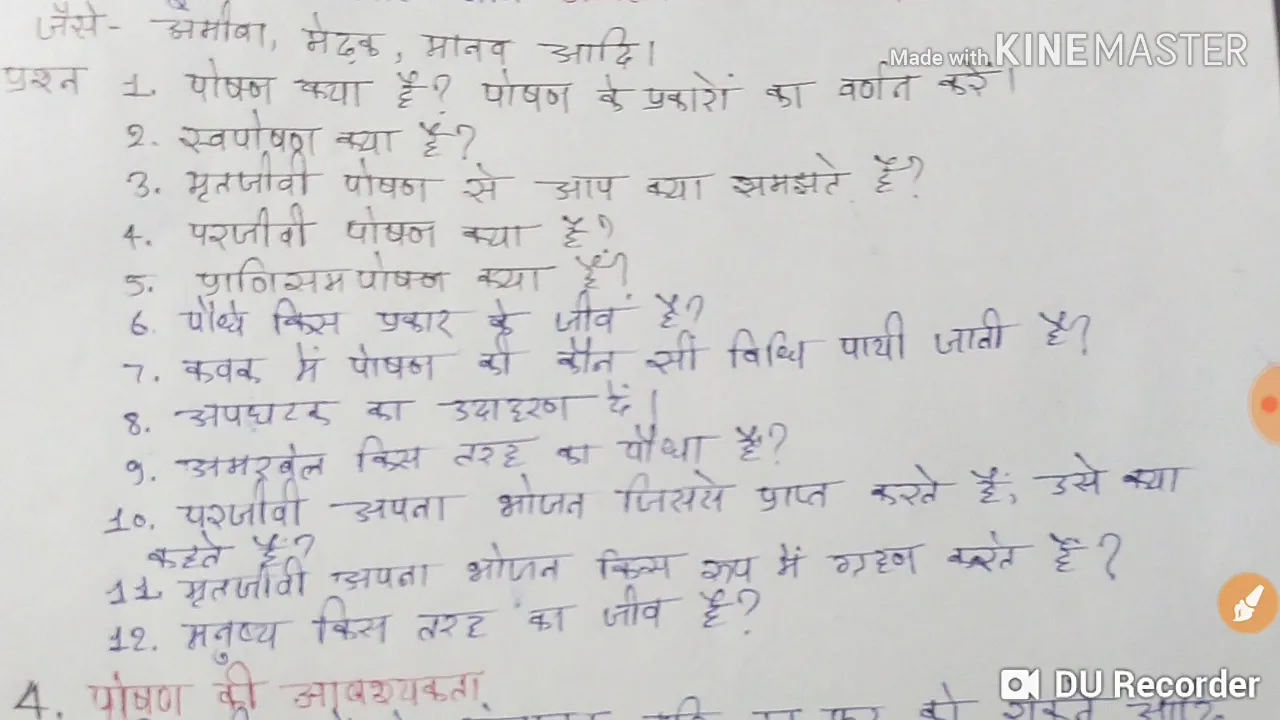 जैसे- अमीवा, मेढ़क, मानव आदि।
Made with KINEMASTER
प्रश्न 1. पोषण क्या है? पोषण के प्रकारों का वर्णन करें।
2. स्वपोषण क्या है?
3. मृतजीवी पोषण से आप क्या समझते है?
4. परजीवी पोषण क्या है?
5. प्राणिसमपोषण क्या है?
6. पौधे किस प्रकार के जीव है?
7. कवक में पोषण की कौन सी विधि पायी जाती है?
8. अपघटक का उदाहरण दें।
9. अमरबेल किस तरह का पौधा है?
10. परजीवी अपना भोजन जिससे प्राप्त करते हैं, उसे क्या
कहते हैं?
11. मृतजीवी अपना भोजन किस रूप में ग्रहण करते है?
12. मनुष्य किस तरह का जीव है?
4. पोषण की आवश्यकता
DU Recorder